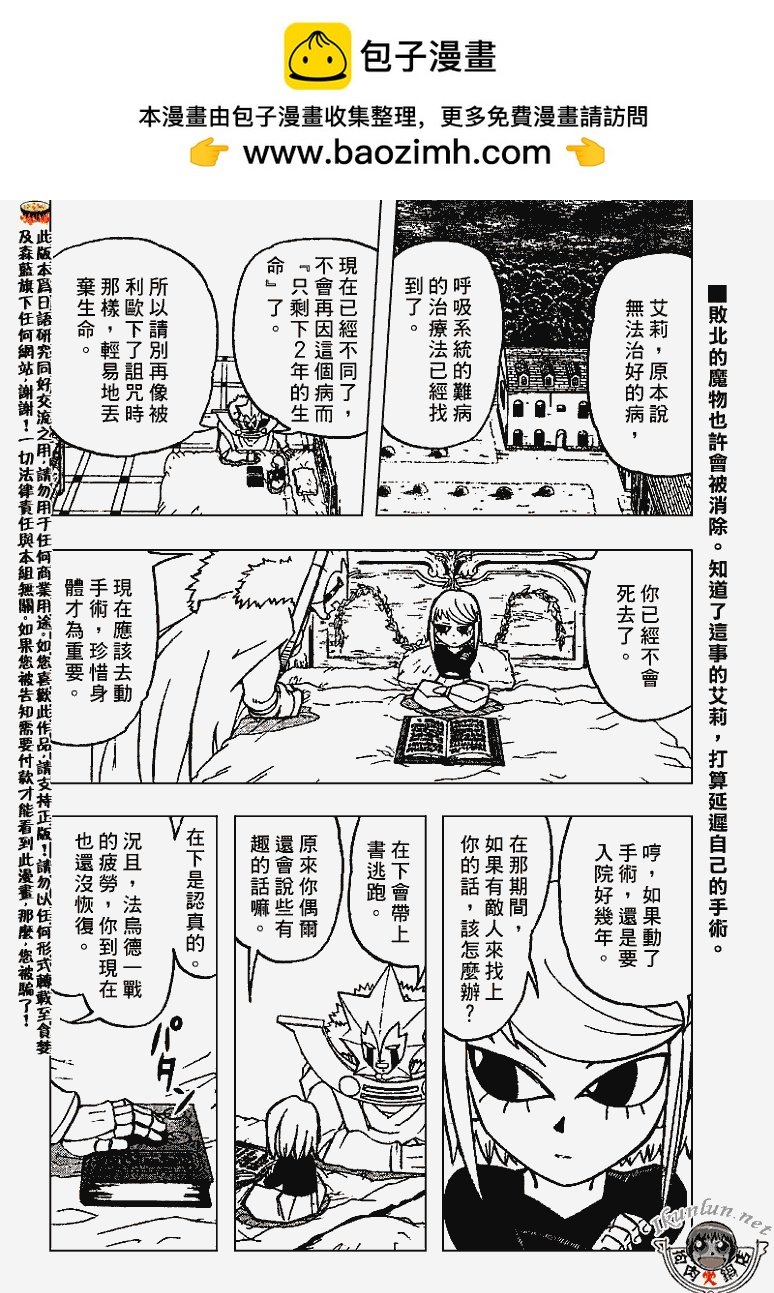 包子漫畫
本漫畫由包子漫畫收集整理，更多免費漫畫請訪問
👉 www.baozimh.com 👈
■敗北的魔物也許會被消除。知道了這事的艾莉，打算延遲自己的手術。
艾莉，原本說
無法治好的病，
呼吸系統的難病
的治療法已經找
到了。
現在已經不同了，
不會再因這個病而
『只剩下2年的生
命』了。
所以請別再像被
利歐下了詛咒時
那樣，輕易地丟
棄生命。
你已經不會
死去了。
現在應該去動
手術，珍惜身
體才為重要。
哼，如果動了
手術，還是要
入院好幾年。
在那期間，
如果有敵人來找上
你的話，該怎麼辦？
在下會帶上
書逃跑。
原來你偶爾
還會說些有
趣的話嘛。
在下是認真的。
況且，法烏德一戰
的疲勞，你到現在
也還沒恢復。
パタン
此版本為日語研究同好交流之用，請勿用于任何商業用途。如您喜歡此作品，請支持正版！請勿以任何形式轉載至貪婪
及森藍旗下任何網站，謝謝！一切法律責任與本組無關。如果您被告知需要付款才能看到此漫畫，那麼，您被騙了！
Ikunlun.net